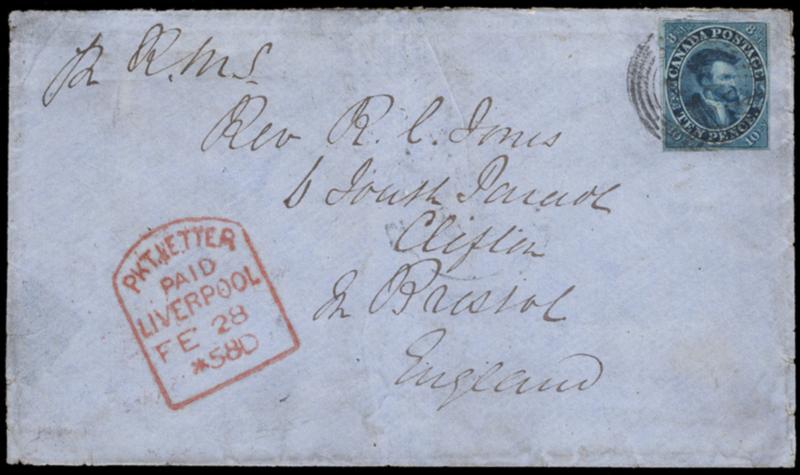 R.M.S.
Rev R. C. Jones
6 South Parade
Clifton
Bristol
England
CANADA POSTAGE
TEN PENCE
8 8
10 10
PKT. LETTER
PAID
LIVERPOOL
FE 28
*58D